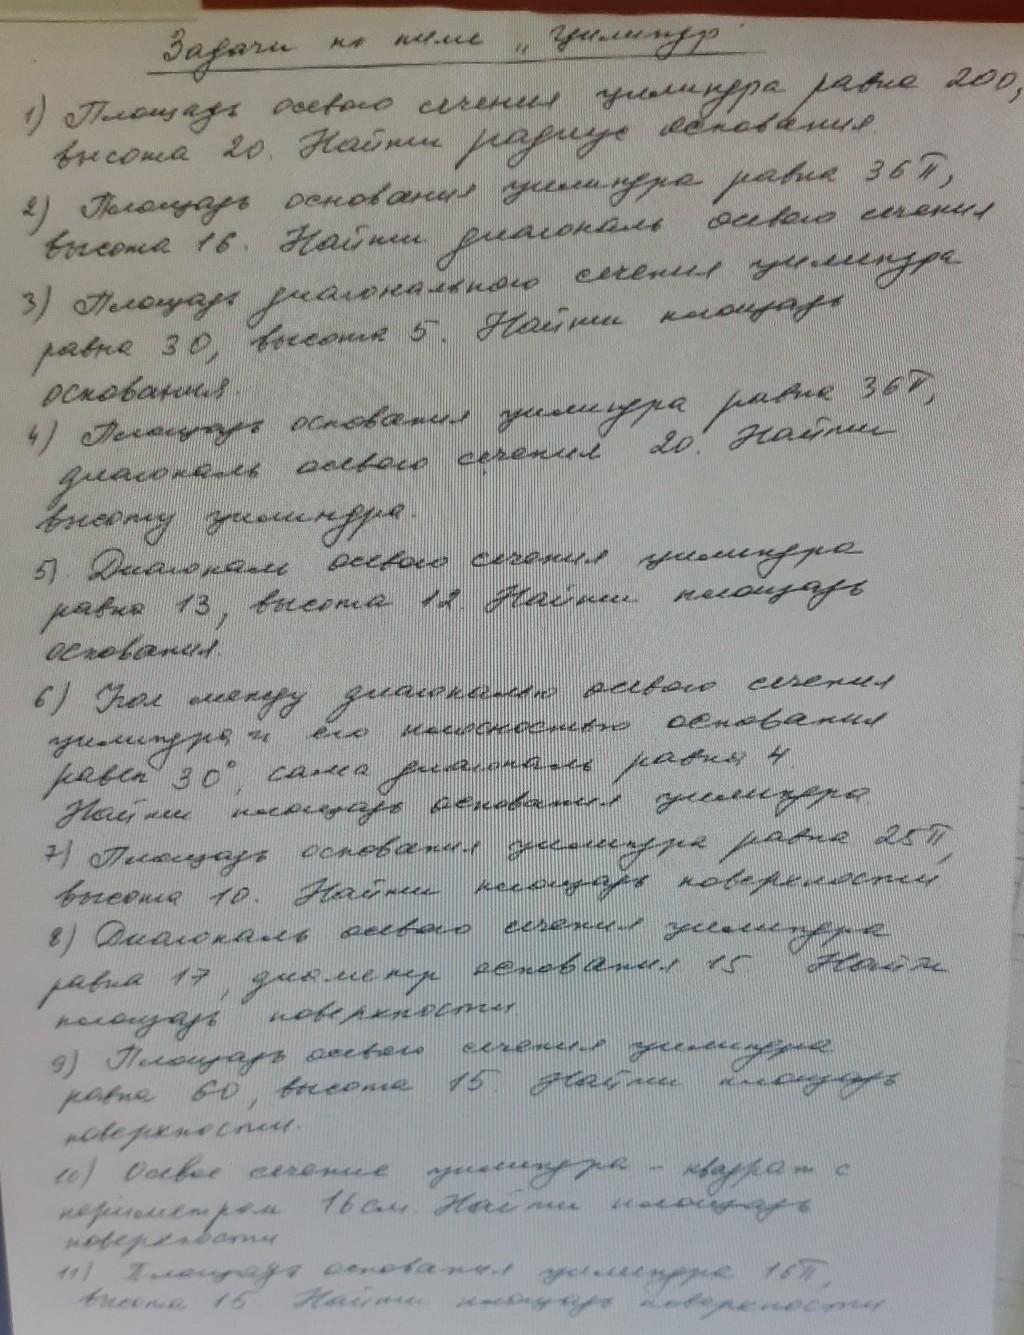 Задачи по теме „Цилиндр
1) Площадь осевого сечения цилиндра равна 200,
высота 20. Найти радиус основания.
2) Площадь основания цилиндра равна 36π,
высота 16. Найти диагональ осевого сечения
3) Площадь диагонального сечения цилиндра
равна 30, высота 5. Найти площадь
основания.
4) Площадь основания цилиндра равна 36π,
диагональ осевого сечения 20. Найти
высоту цилиндра.
5) Диагональ осевого сечения цилиндра
равна 13, высота 12. Найти площадь
основания.
6) Угол между диагональю осевого сечения
цилиндра и его плоскостью основания
равен 30°, сама диагональ равна 4.
Найти площадь основания цилиндра.
7) Площадь основания цилиндра равна 25π,
высота 10. Найти площадь поверхности
8) Диагональ осевого сечения цилиндра
равна 17, диаметр основания 15 Найти
площадь поверхности.
9) Площадь осевого сечения цилиндра
равна 60, высота 15. Найти площадь
поверхности.
10) Осевое сечение цилиндра - квадрат с
периметром 16 см. Найти площадь
поверхности
11) Площадь основания цилиндра 16π,
высота 15. Найти площадь поверхности